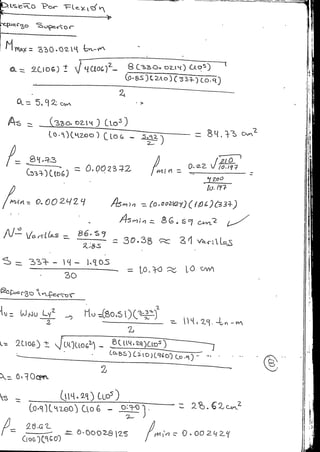 Diseño Por Flexión
Refuerzo Superior
Mmax = 330.0214 tn-m
a = 2(106) ± √4(106)² - 8(330.0214)(10⁵) / (0.85)(210)(337)(0.9)
2
a = 5.92 cm
As = (330.0214)(10⁵) / (0.9)(4200)(106 - 5.92/2) = 84.73 cm²
ρ = 84.73 / (337)(106) = 0.002372 ρmin = 0.22 √210/10.197 / 4200/10.197
ρmin = 0.002424 Asmin = (0.002424)(106)(337)
Asmin = 86.59 cm²
N° Varillas = 86.59 / 2.85 = 30.38 ≈ 31 varillas
S = 337 - 14 - 1.905 / 30 = 10.70 ≈ 10 cm
Refuerzo inferior
Mu = WNU Ly² / 2 → Mu = (80.51)( )² / 2 = 114.29 tn-m
a = 2(106) ± √(4)(106²) - 8(114.29)(10⁵) / (0.85)(210)(960)(0.9)
2
a = 0.70 cm
As = (114.29)(10⁵) / (0.9)(4200)(106 - 0.70/2) = 28.62 cm²
ρ = 28.62 / (106)(960) = 0.00028125 ρmin = 0.002424
8